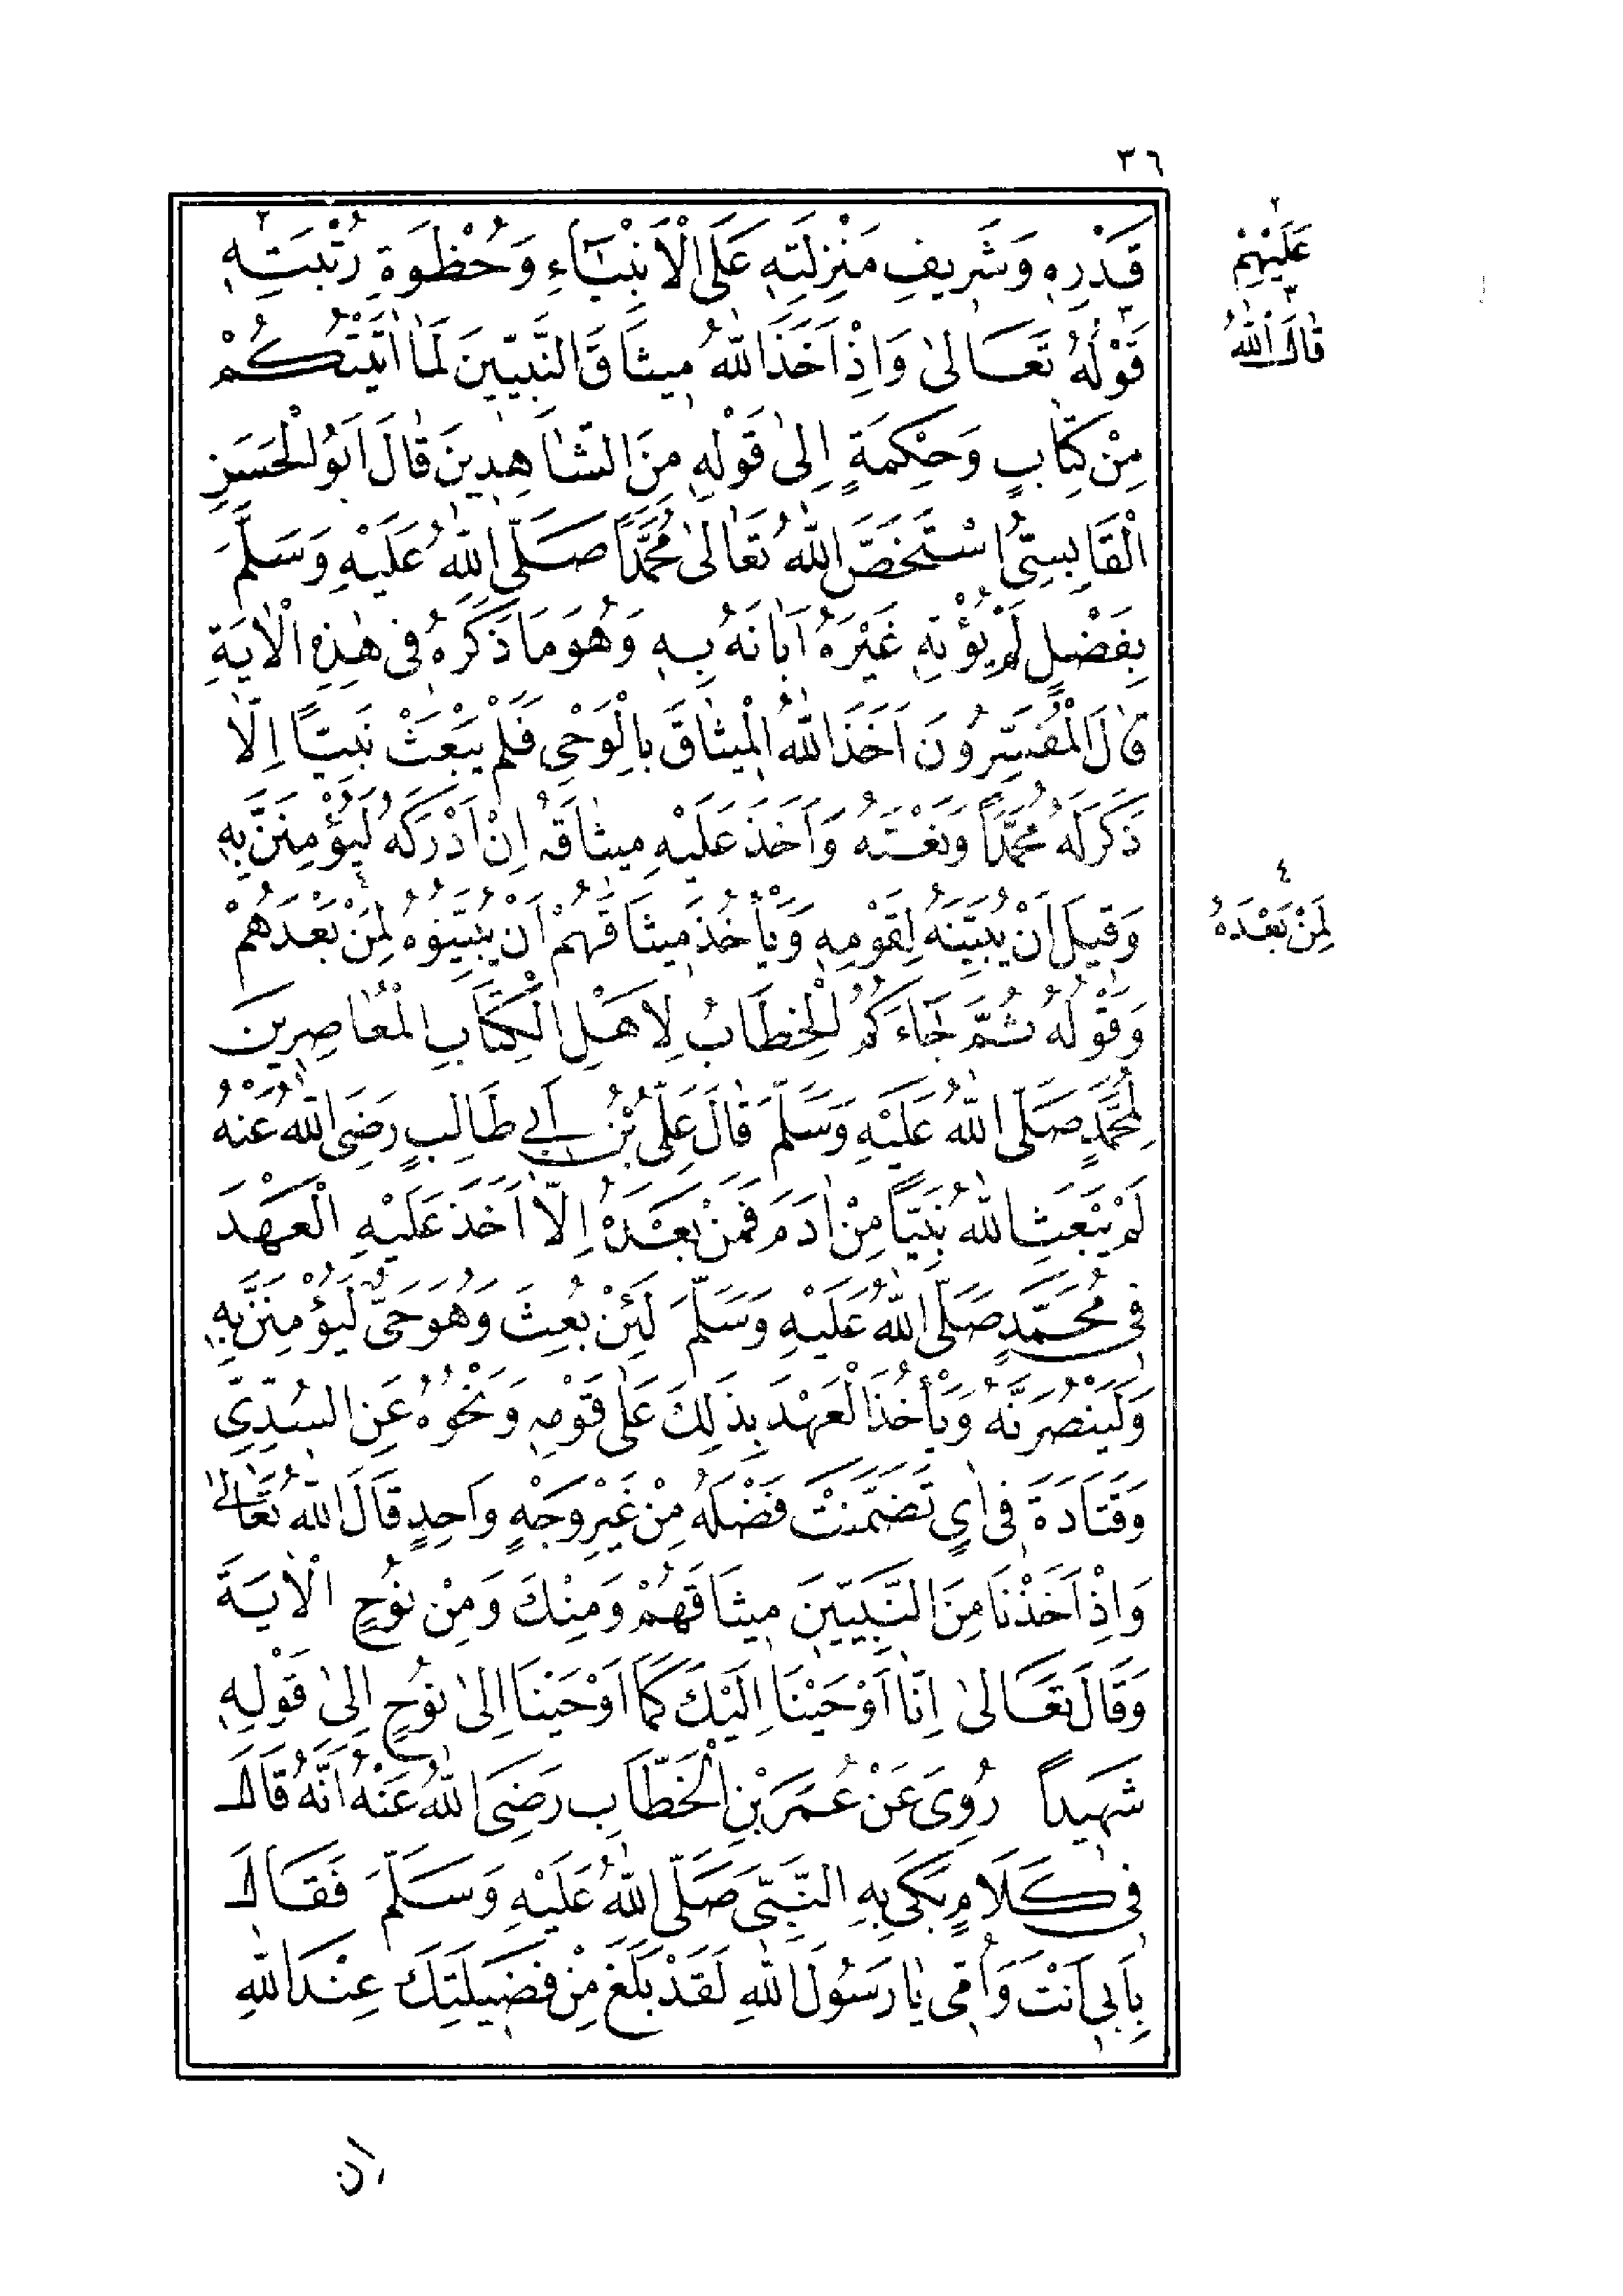 ٣٦
قَدْرِهِ وَشَرِيفِ مَنْزِلَتِهِ عَلَى الْاَنْبِيَٓاءِ وَحُظْوَةِ رُتْبَتِهِ ٢
قَوْلُهُ ٣ تَعَالىٰ وَاِذْ اَخَذَ اللّٰهُ مِيثَاقَ النَّبِيّينَ لَمَا اٰتَيْتُكُمْ
مِنْ كِتَابٍ وَحِكْمَةٍ اِلىٰ قَوْلِهِ مِنَ الشَّاهِدِينَ قَالَ اَبُو الْحَسَنِ
الْقَابِسِىُّ اسْتَخَصَّ اللّٰهُ تَعَالىٰ مُحَمَّدًا صَلَّى اللّٰهُ عَلَيْهِ وَسَلَّمَ
بِفَضْلٍ لَمْ يُؤْتِهِ غَيْرَهُ اَبَانَهُ بِهِ وَهُوَ مَا ذَكَرَهُ فِى هٰذِهِ الْاٰيَةِ
قَالَ الْمُفَسِّرُونَ اَخَذَ اللّٰهُ الْمِيثَاقَ بِالْوَحْىِ فَلَمْ يَبْعَثْ نَبِيًّا اِلَّا
ذَكَرَ لَهُ مُحَمَّدًا وَنَعْتَهُ وَاَخَذَ عَلَيْهِ مِيثَاقَهُ اِنْ اَدْرَكَهُ لَيُؤْمِنَنَّ بِهِ
وَقِيلَ اَنْ يُبَيِّنَهُ لِقَوْمِهِ وَيَأْخُذَ مِيثَاقَهُمْ اَنْ يُبَيِّنُوهُ لِمَنْ ٤ بَعْدَهُمْ
وَقَوْلُهُ ثُمَّ جَاءَكُمْ الْخِطَابُ لِاَهْلِ الْكِتَابِ الْمُعَاصِرِينَ
لِمُحَمَّدٍ صَلَّى اللّٰهُ عَلَيْهِ وَسَلَّمَ قَالَ عَلِىُّ بْنُ اَبِى طَالِبٍ رَضِىَ اللّٰهُ عَنْهُ
لَمْ يَبْعَثِ اللّٰهُ نَبِيًّا مِنْ اٰدَمَ فَمَنْ بَعْدَهُ اِلَّا اَخَذَ عَلَيْهِ الْعَهْدَ
فِى مُحَمَّدٍ صَلَّى اللّٰهُ عَلَيْهِ وَسَلَّمَ لَئِنْ بُعِثَ وَهُوَ حَىٌّ لَيُؤْمِنَنَّ بِهِ
وَلَيَنْصُرَنَّهُ وَيَأْخُذَ الْعَهْدَ بِذٰلِكَ عَلٰى قَوْمِهِ وَنَحْوُهُ عَنِ السُّدِّىِّ
وَقَتَادَةَ فِى اٰىٍ تَضَمَّنَتْ فَضْلَهُ مِنْ غَيْرِ وَجْهٍ وَاحِدٍ قَالَ اللّٰهُ تَعَالىٰ
وَاِذْ اَخَذْنَا مِنَ النَّبِيّينَ مِيثَاقَهُمْ وَمِنْكَ وَمِنْ نُوحٍ الْاٰيَةَ
وَقَالَ تَعَالىٰ اِنَّا اَوْحَيْنَا اِلَيْكَ كَمَا اَوْحَيْنَا اِلىٰ نُوحٍ اِلىٰ قَوْلِهِ
شَهِيداً رُوِىَ عَنْ عُمَرَ بْنِ الْخَطَّابِ رَضِىَ اللّٰهُ عَنْهُ اَنَّهُ قَالَ
فِى كَلَامٍ بَكٰى بِهِ النَّبِىَّ صَلَّى اللّٰهُ عَلَيْهِ وَسَلَّمَ فَقَالَ
بِاَبِى اَنْتَ وَاُمِّى يَا رَسُولَ اللّٰهِ لَقَدْ بَلَغَ مِنْ فَضِيلَتِكَ عِنْدَ اللّٰهِ
٢
عَلَيْهِمْ
٣
قَالَ اللّٰهُ
٤
لِمَنْ بَعْدَهُ